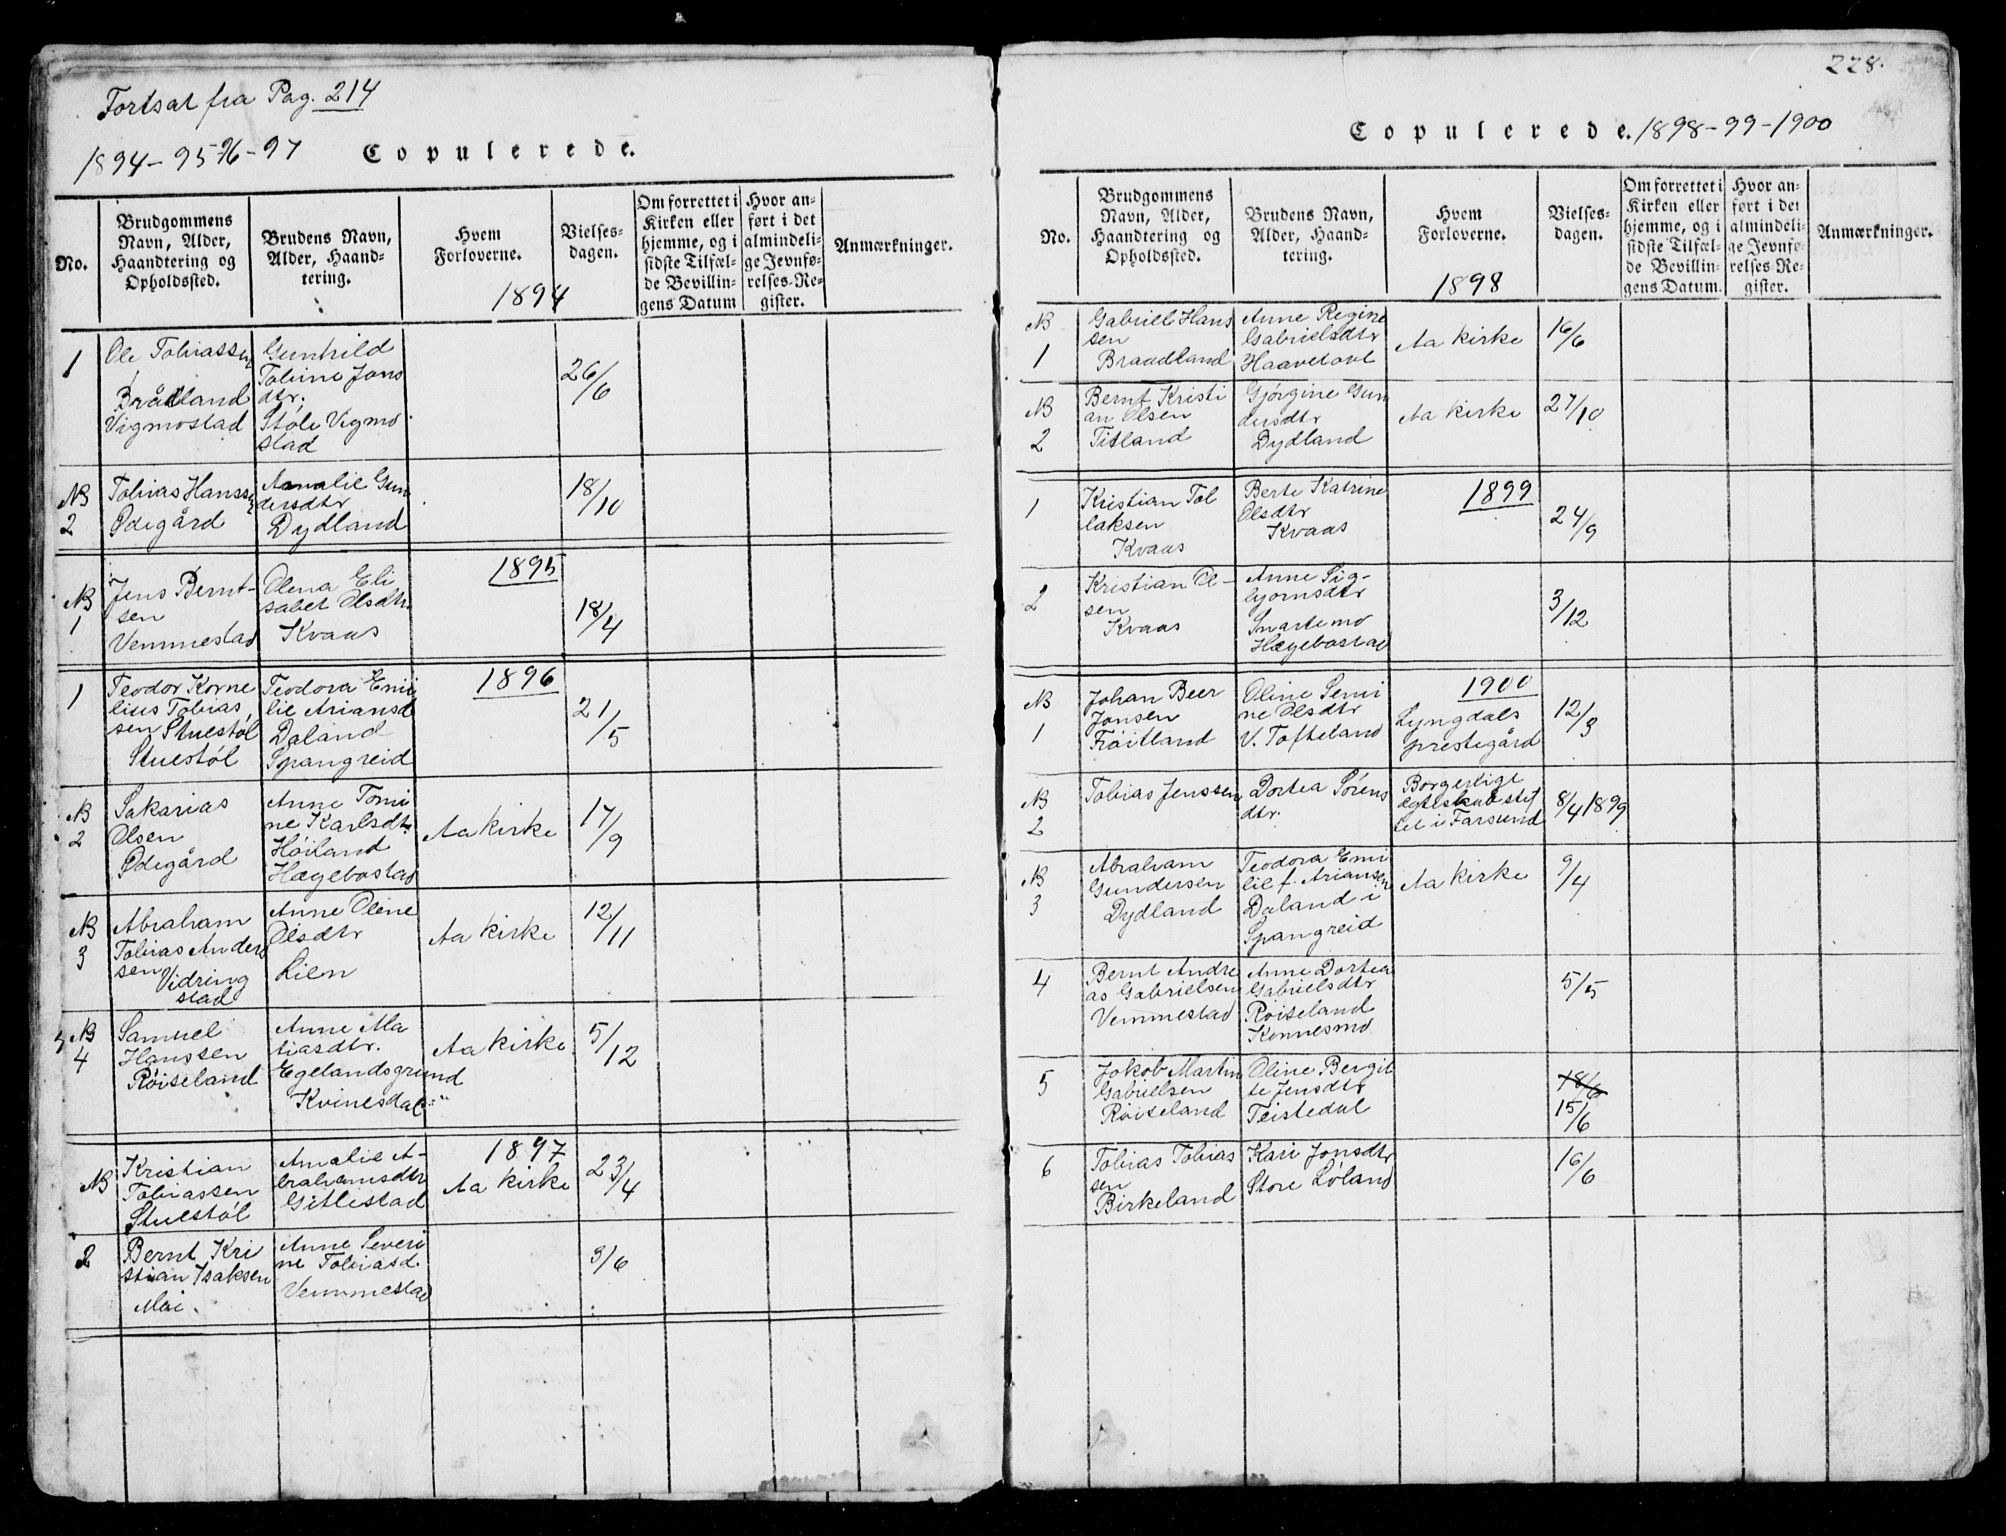 Fortsat fra Pag. 214
1894-95-96-97 Copulerede.
No.
Brudgommens
Navn, Alder,
Haandtering og
Opholdssted.
Brudens Navn,
Alder, Haand-
tering.
Hvem
Forloverne.
1894
Vielses-
dagen.
Om forrettet i
Kirken eller
hjemme, og i
sidste Tilfæl-
de Bevillin-
gens Datum
Hvor an-
ført i det
almindeli-
ge Jevnfø-
relses-Re-
gister.
Anmærkninger.
1
Ole Tobiassen
Brådland
Vigmostad
Gunhild
Tobine Jons
dtr.
Støle Vigmo
stad
26/6
NB
2
Tobias Hanssen
Ødegård
Amalie Gun
dersdtr
Dydland
18/10
1895
NB
1
Jens Bernt-
sen
Vemmestad
Olena Eli
sabet Olsdtr.
Kvaas
18/4
1896
1
Teodor Korne
lius Tobias
sen Stuestøl
Stuestøl
Teodora Emi
lie Ariansd
Daland
Spangreid
21/5
NB
2
Sakarias
Olsen
Ødegård
Anne Tomi
ne Karlsdtr
Høiland
Hægebostad
Aa kirke
17/9
NB
3
Abraham
Tobias Anders
sen Vidring
stad
Anne Oline
Olsdtr
Lien
Aa kirke
12/11
NB
4
Samuel
Hanssen
Røiseland
Anne Ma
tiasdtr.
Egelandsgrund
Kvinesdal
Aa kirke
5/12
1897
NB
Kristian
Tobiassen
Stuestøl
Amalie A-
brahamsdtr
Gitlestad
Aa kirke
23/4
2
Bernt Kri
stian Isaksen
Moi.
Anne Severi
ne Tobiasd.
Vemmestad
3/6
228.
Copulerede. 1898-99-1900
No.
Brudgommens
Navn, Alder,
Haandtering og
Opholdssted.
Brudens Navn,
Alder, Haand-
tering.
Hvem
Forloverne.
1898
Vielses-
dagen.
Om forrettet i
Kirken eller
hjemme, og i
sidste Tilfæl-
de Bevillin-
gens Datum.
Hvor an-
ført i det
almindeli-
ge Jevnfø-
relses-Re-
gister.
Anmærkninger.
NB
1
Gabriel Hans
sen
Braadland
Anne Regine
Gabrielsdtr
Haavetovt
Aa kirke
16/6
NB
2
Bernt Kristi
an Olsen
Titland
Gjørgine Gun
dersdtr
Dydland
Aa kirke
27/10
1899
1
Kristian Tol
laksen
Kvaas
Berte Katrine
Olsdtr
Kvaas
24/9
2
Kristian Ol-
sen
Kvaas
Anne Sig-
bjornsdtr
Snartemo
Hægebostad
3/12
1900
NB
1
Johan Beer
Jonsen
Frøitland
Oline Semi
ne Olsdtr
V. Tofteland
Lyngdals
prestegård
12/3
NB
2
Tobias Jenssen
Dortea Sørens
dtr.
Borgerligt
ægteskab stif
tet i Farsund
8/4 1899
NB
3
Abraham
Gundersen
Dydland
Teodora Emi
lie f. Ariansen
Daland i
Spangreid
Aa kirke
9/4
4
Bernt Andre
as Gabrielsen
Vemmestad
Anne Dortea
Gabrielsdtr
Røiseland
Konnesmo
5/5
5
Jakob Martin
Gabrielsen
Røiseland
Oline Bergit
te Jensdtr
Teistedal
18/6
15/6
6
Tobias Tobias
sen
Birkeland
Kari Jonsdtr
Store Løland
16/6